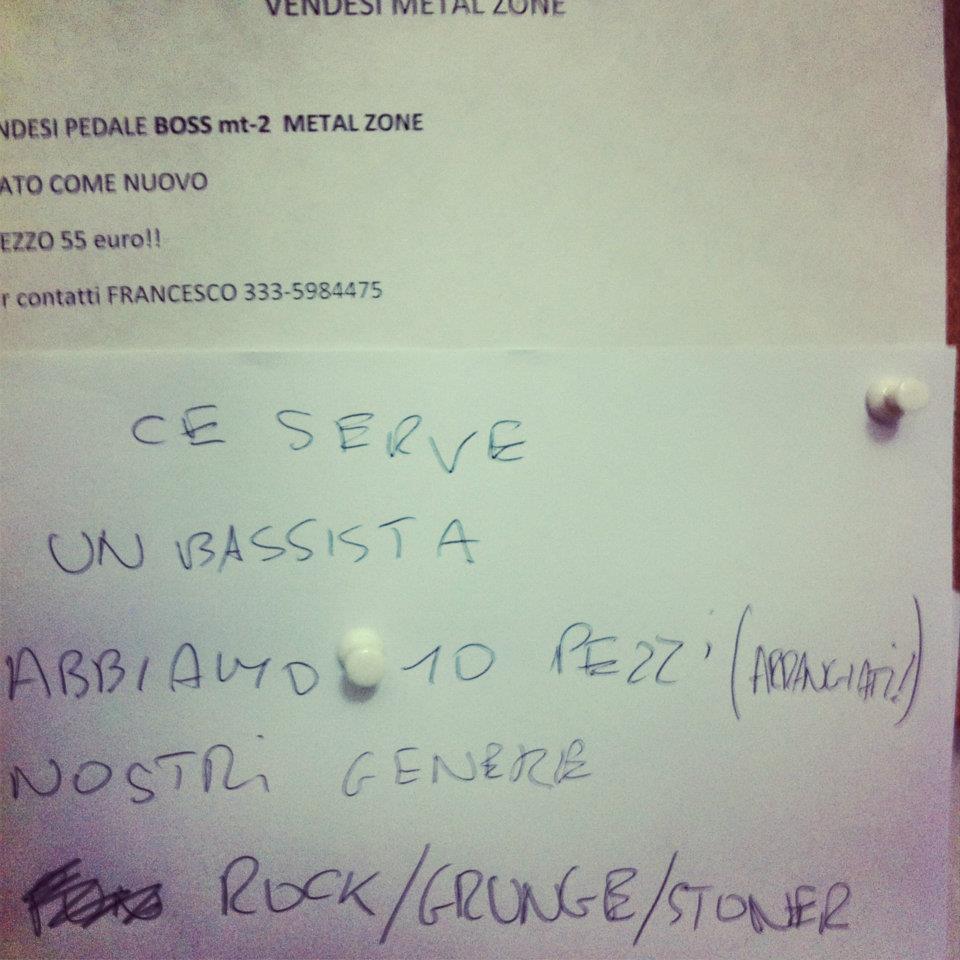 VENDESI METAL ZONE
NDESI PEDALE BOSS mt-2 METAL ZONE
ATO COME NUOVO
EZZO 55 euro!!
r contatti FRANCESCO 333-5984475
CE SERVE
UN BASSISTA
ABBIAMO 10 PEZZI (ARRANGIATI!)
NOSTRI GENERE
ROCK/GRUNGE/STONER